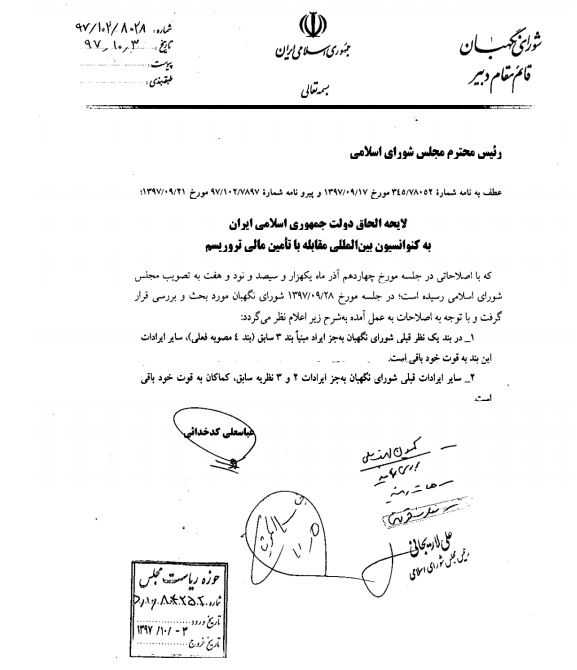 شماره: ۹۷/۱۰۲/۸۰۲۸
تاریخ: ۹۷.۱۰.۳
پیوست:
طبقه‌بندی:
جمهوری اسلامی ایران
بسمه تعالی
شورای نگهبان
قائم مقام دبیر
رئیس محترم مجلس شورای اسلامی
عطف به نامه شمارهٔ ۳۴۵/۷۸۰۵۲ مورخ ۱۳۹۷/۰۹/۱۷ و پیرو نامه شمارهٔ ۹۷/۱۰۲/۷۸۹۷ مورخ ۱۳۹۷/۰۹/۲۱؛
لایحه الحاق دولت جمهوری اسلامی ایران
به کنوانسیون بین‌المللی مقابله با تأمین مالی تروریسم
که با اصلاحاتی در جلسه مورخ چهاردهم آذر ماه یکهزار و سیصد و نود و هفت به تصویب مجلس
شورای اسلامی رسیده است؛ در جلسه مورخ ۱۳۹۷/۰۹/۲۸ شورای نگهبان مورد بحث و بررسی قرار
گرفت و با توجه به اصلاحات به عمل آمده به‌شرح زیر اعلام نظر می‌گردد:
۱_ در بند یک نظر قبلی شورای نگهبان به‌جز ایراد مبنیاً بند ۳ سابق (بند ۴ مصوبه فعلی)، سایر ایرادات
این بند به قوت خود باقی است.
۲_ سایر ایرادات قبلی شورای نگهبان به‌جز ایرادات ۲ و ۳ نظریه سابق، کماکان به قوت خود باقی
است.
عباسعلی کدخدائی
علی لاریجانی
رئیس مجلس شورای اسلامی
حوزه ریاست مجلس
شماره:
تاریخ ورود:
۱۳۹۷/۱۰/-۳
تاریخ خروج